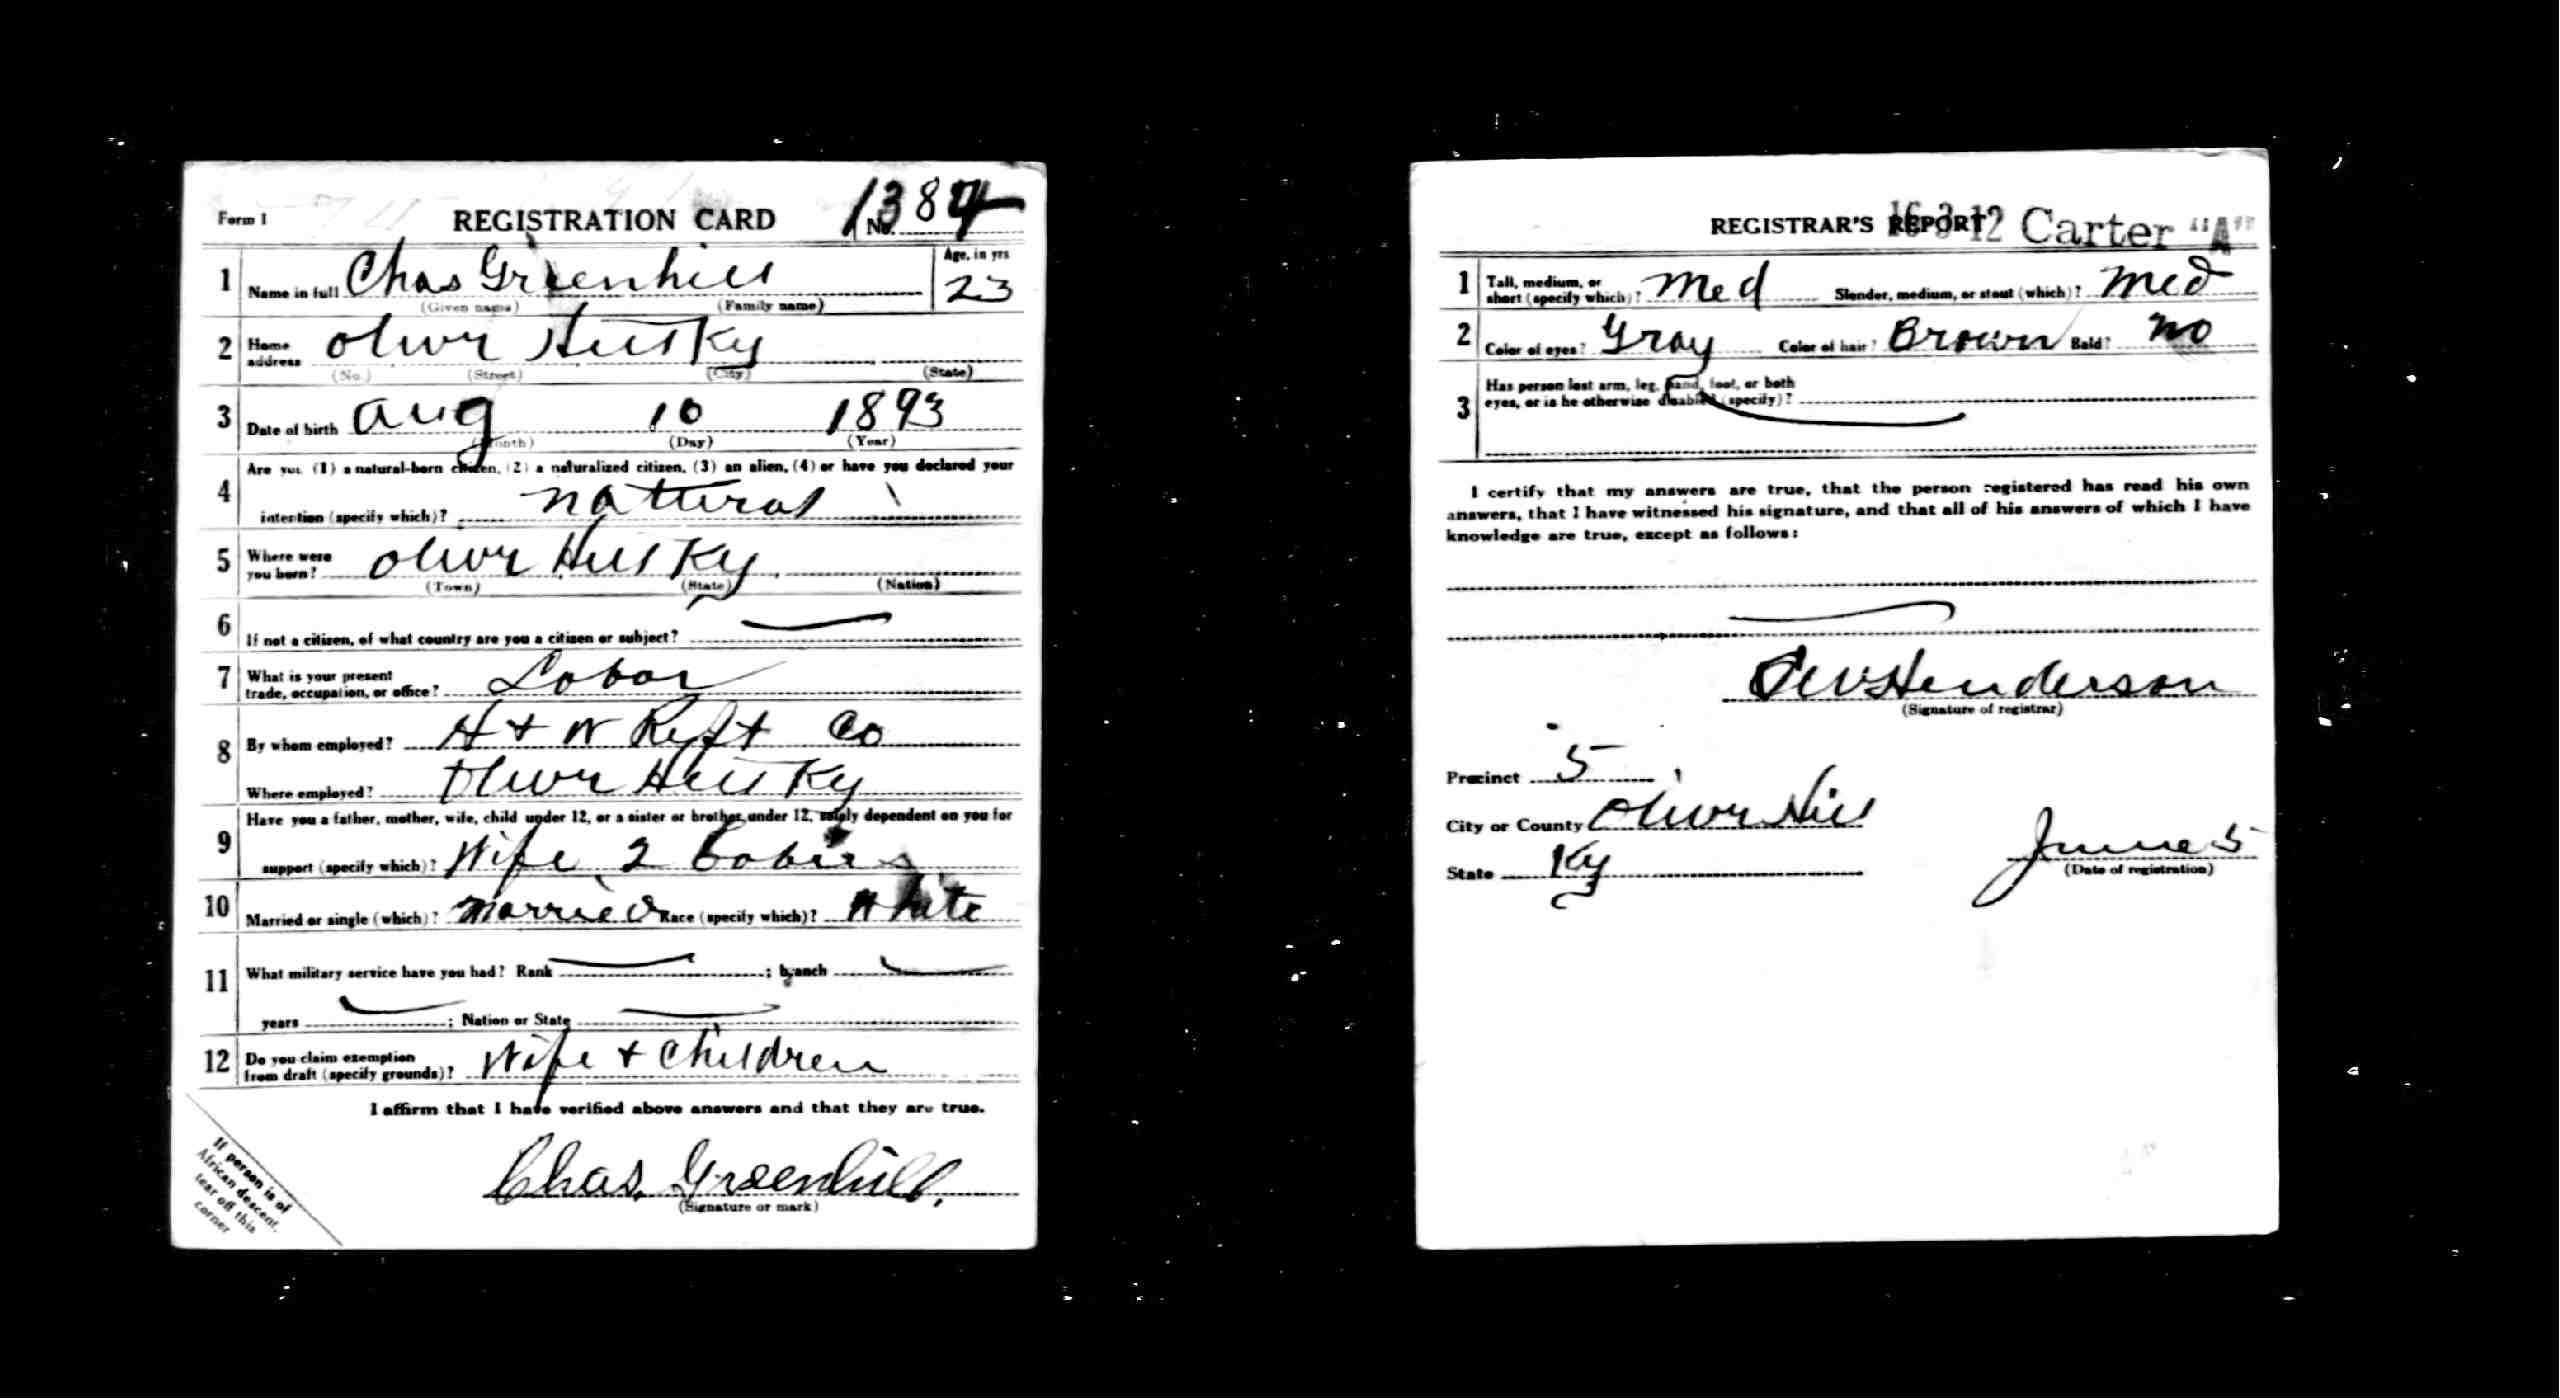 Form 1
REGISTRATION CARD
No. 1384
1 Name in full Chas Greenhill
(Given name) (Family name)
Age, in yrs
23
2 Home address Olive Hill Ky
(No.) (Street) (City) (State)
3 Date of birth Aug 10 1893
(Month) (Day) (Year)
4 Are you (1) a natural-born citizen, (2) a naturalized citizen, (3) an alien, (4) or have you declared your
intention (specify which)? natural
5 Where were you born? Olive Hill Ky
(Town) (State) (Nation)
6 If not a citizen, of what country are you a citizen or subject?
7 What is your present trade, occupation, or office? Labor
8 By whom employed? H + W Co
Where employed? Olive Hill Ky
9 Have you a father, mother, wife, child under 12, or a sister or brother under 12, solely dependent on you for
support (specify which)? Wife 2 Babies
10 Married or single (which)? Married Race (specify which)? White
11 What military service have you had? Rank ; branch
years ; Nation or State
12 Do you claim exemption from draft (specify grounds)? Wife + Children
I affirm that I have verified above answers and that they are true.
Chas. Greenhill.
(Signature or mark)
If person is of
African descent,
tear off this
corner
REGISTRAR'S REPORT
16-3-12 Carter "A"
1 Tall, medium, or short (specify which)? Med Slender, medium, or stout (which)? Med
2 Color of eyes? Gray Color of hair? Brown Bald? No
3 Has person lost arm, leg, hand, foot, or both
eyes, or is he otherwise disabled (specify)?
I certify that my answers are true, that the person registered has read his own
answers, that I have witnessed his signature, and that all of his answers of which I have
knowledge are true, except as follows:
Henderson
(Signature of registrar)
Precinct 5
City or County Olive Hill
State Ky
June 5
(Date of registration)